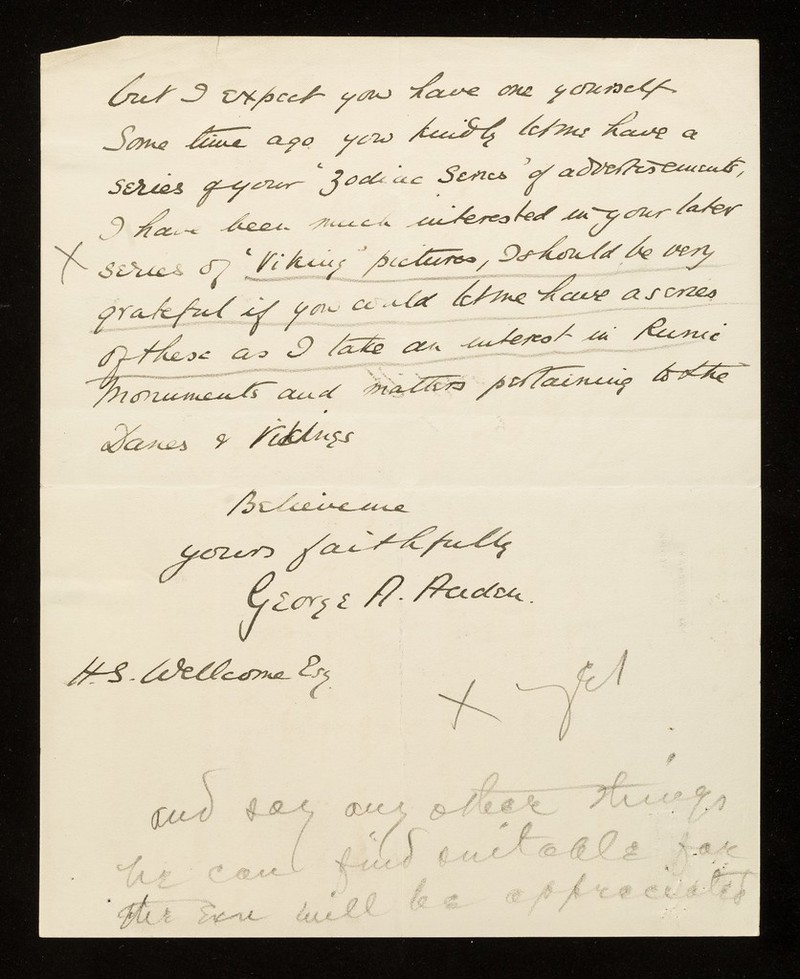 but I expect you have one yourself
Some time ago you kindly let me have a
series of your 'Zodiac Series' of advertisements,
I have been much interested in your later
X series of 'Viking' pictures, I should be very
grateful if you could let me have a series
of these as I take an interest in Runic
Monuments and matters pertaining to the
Danes & Vikings
Believe me
yours faithfully
George A. Auden.
H.S. Wellcome Esq.
X
and say any other things
he can find suitable for
the Exn will be appreciated